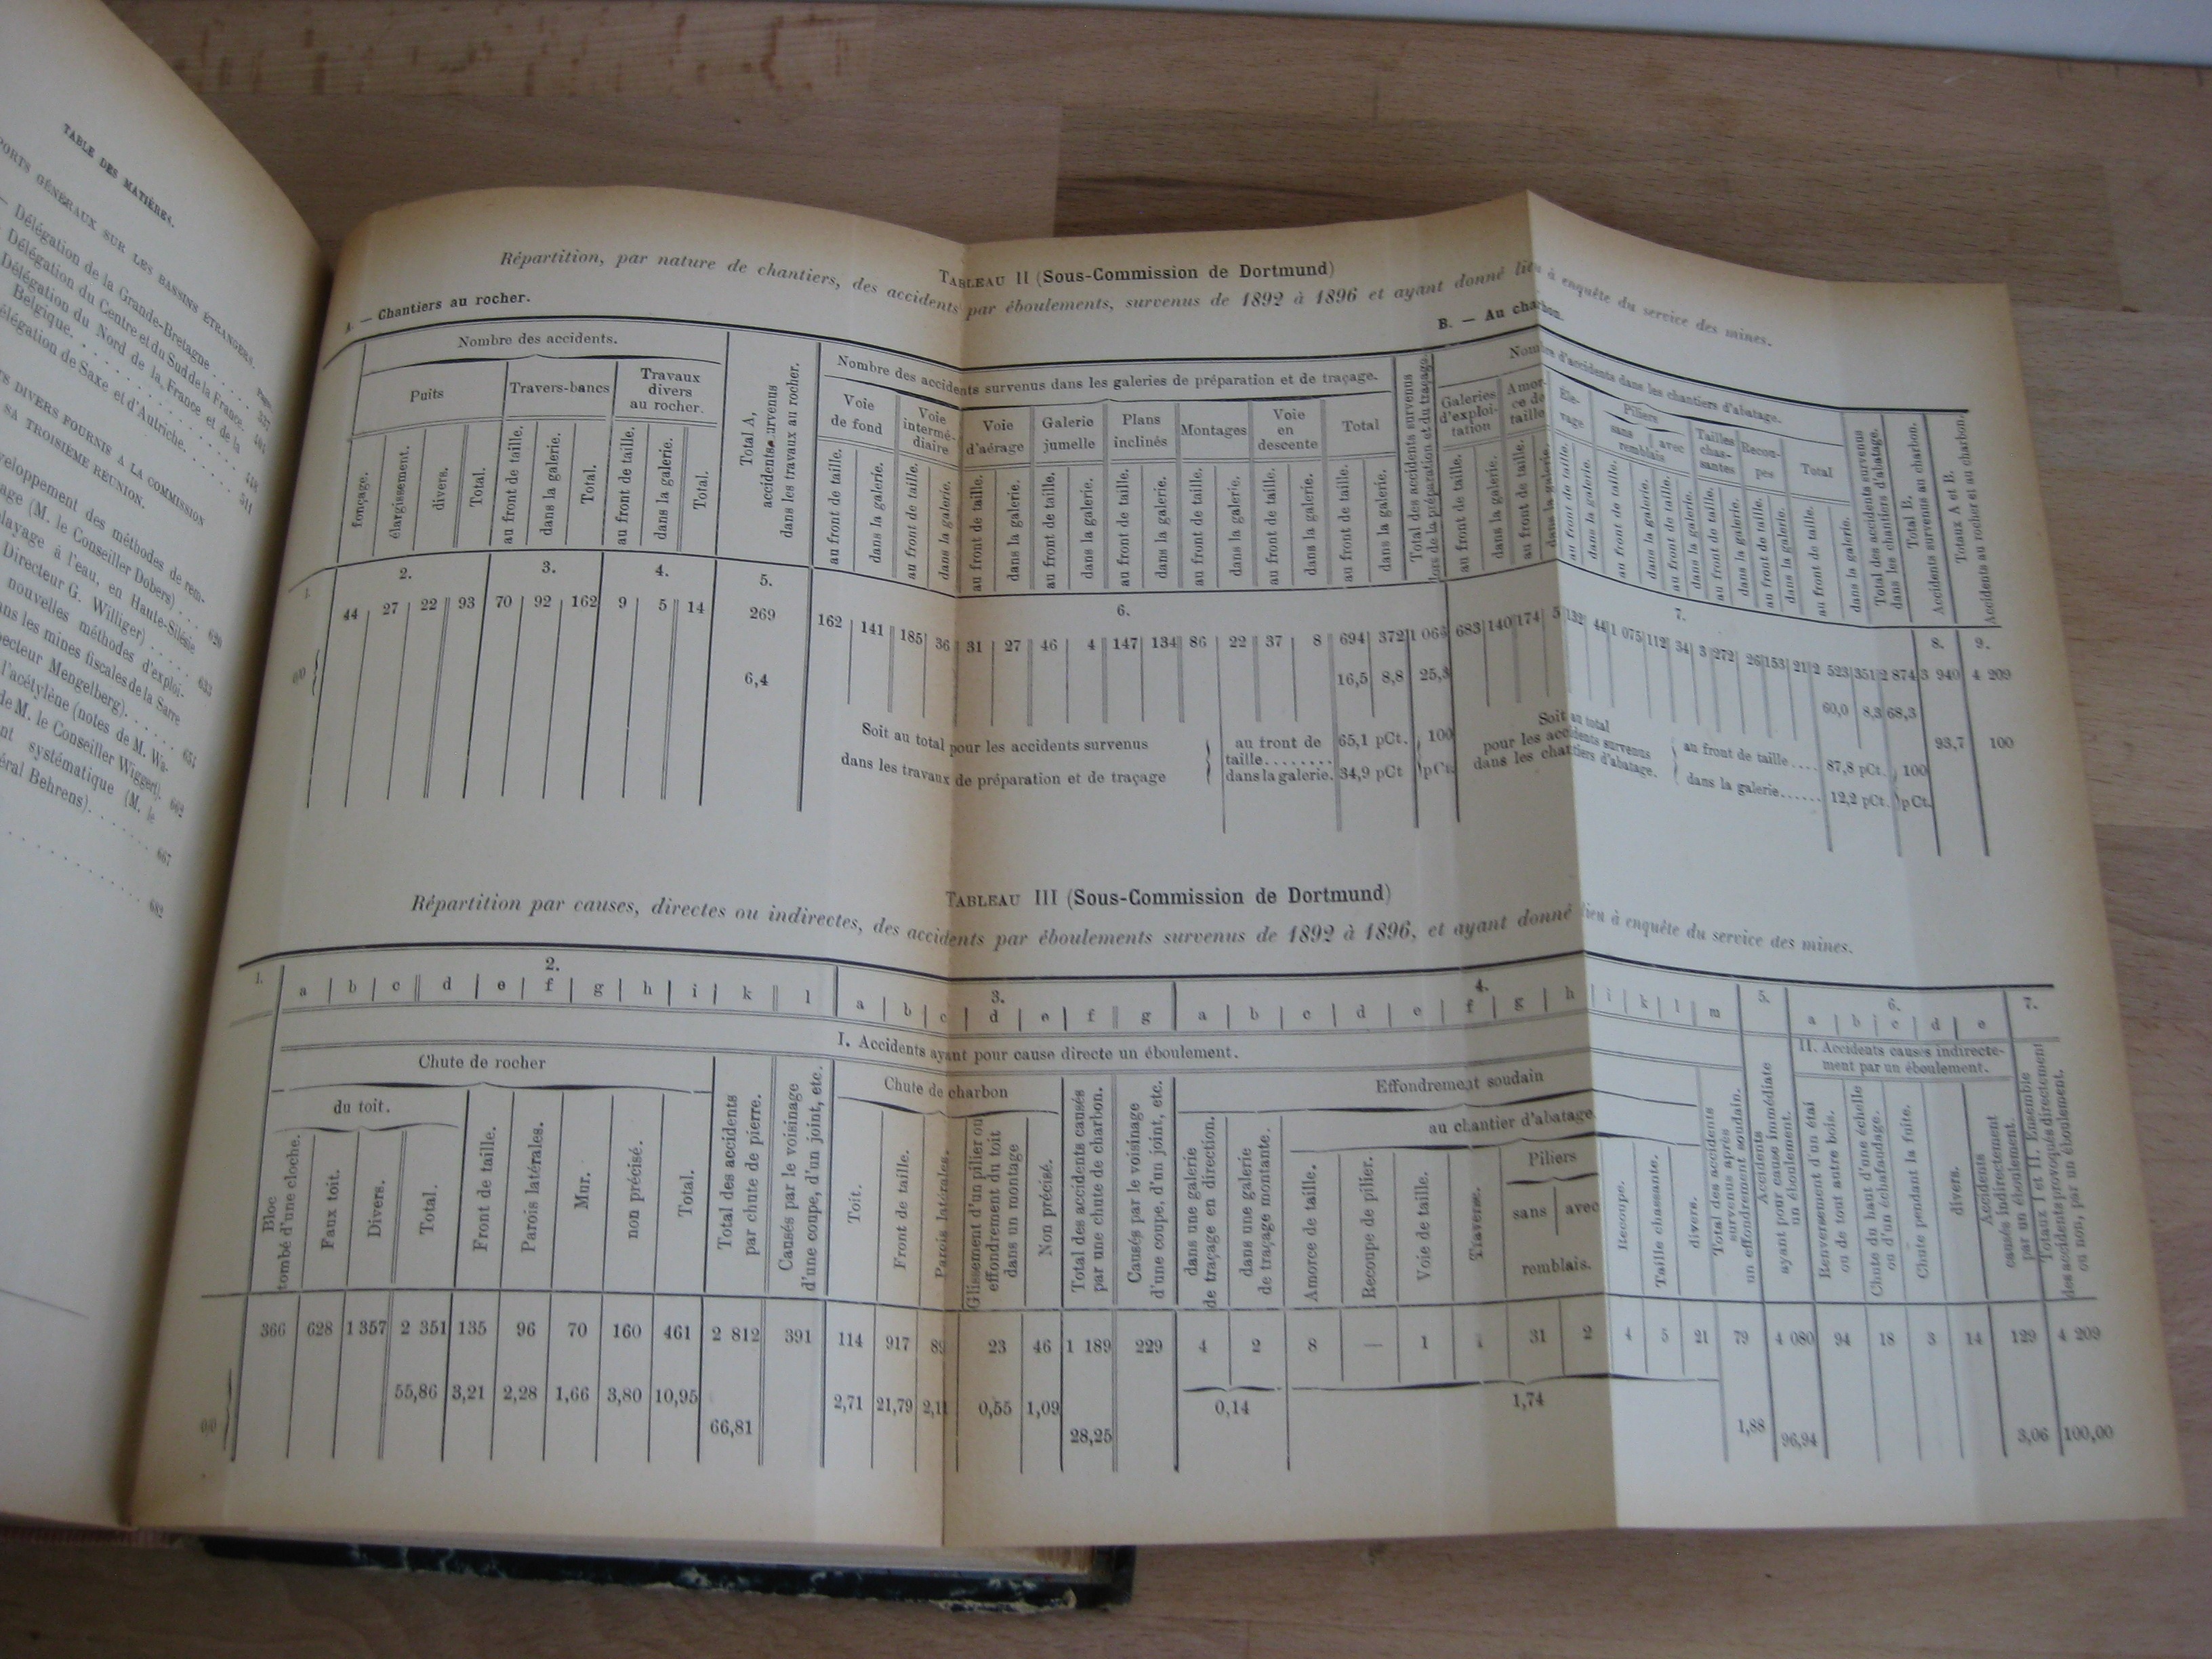 TABLE DES MATIÈRES.
PORTS GÉNÉRAUX SUR LES BASSINS ÉTRANGERS.
Pages.
— Délégation de la Grande-Bretagne . . . . 337
Délégation du Centre et du Sud de la France. . 404
Délégation du Nord de la France et de la
Belgique. . . . . . . . . . 448
élégation de Saxe et d'Autriche. . . . . . 511
TS DIVERS FOURNIS A LA COMMISSION
SA TROISIÈME RÉUNION.
veloppement des méthodes de rem-
age (M. le Conseiller Dobers) . . . 620
layage à l'eau, en Haute-Silésie
Directeur G. Williger) . . . . 633
nouvelles méthodes d'exploi-
ans les mines fiscales de la Sarre
pecteur Mengelberg). . . . . . 651
l'acétylène (notes de M. Wa-
de M. le Conseiller Wiggert). 662
nt systématique (M. le
éral Behrens). . . . . . . 667
. . . . . . . . . 682
TABLEAU II (Sous-Commission de Dortmund)
Répartition, par nature de chantiers, des accidents par éboulements, survenus de 1892 à 1896 et ayant donné lieu à enquête du service des mines.
A. — Chantiers au rocher.
B. — Au charbon.
Nombre des accidents.
Puits
Travers-bancs
Travaux divers au rocher.
fonçage.
élargissement.
divers.
Total.
au front de taille.
dans la galerie.
Total.
au front de taille.
dans la galerie.
Total.
Total A, accidents survenus dans les travaux au rocher.
Nombre des accidents survenus dans les galeries de préparation et de traçage.
Voie de fond
Voie intermé-diaire
Voie d'aérage
Galerie jumelle
Plans inclinés
Montages
Voie en descente
Total
au front de taille.
dans la galerie.
au front de taille.
dans la galerie.
au front de taille.
dans la galerie.
au front de taille.
dans la galerie.
au front de taille.
dans la galerie.
au front de taille.
dans la galerie.
au front de taille.
dans la galerie.
au front de taille.
dans la galerie.
Total des accidents survenus lors de la préparation et du traçage.
Nombre d'accidents dans les chantiers d'abatage.
Galeries d'exploi-tation
Amor-ce de taille
Éle-vage
Piliers
sans | avec
remblais
Tailles chas-santes
Recou-pes
Total
au front de taille.
dans la galerie.
au front de taille.
dans la galerie.
au front de taille.
dans la galerie.
au front de taille.
dans la galerie.
au front de taille.
dans la galerie.
au front de taille.
dans la galerie.
au front de taille.
dans la galerie.
au front de taille.
dans la galerie.
Total des accidents survenus dans les chantiers d'abatage.
Total B. Accidents survenus au charbon.
Totaux A et B. Accidents au rocher et au charbon.
1. 2. 3. 4. 5. 6. 7. 8. 9.
44 27 22 93 70 92 162 9 5 14 269 162 141 185 36 31 27 46 4 147 134 86 22 37 8 694 372 1 066 683 140 174 5 132 44 1 075 112 34 3 272 26 153 21 2 523 351 2 874 3 940 4 209
0/0 6,4 16,5 8,8 25,3 60,0 8,3 68,3 93,7 100
Soit au total pour les accidents survenus
dans les travaux de préparation et de traçage
au front de taille........ 65,1 pCt.
dans la galerie. 34,9 pCt
100 pCt.
Soit au total
pour les accidents survenus
dans les chantiers d'abatage.
au front de taille.... 87,8 pCt.
dans la galerie...... 12,2 pCt.
100 pCt.
TABLEAU III (Sous-Commission de Dortmund)
Répartition par causes, directes ou indirectes, des accidents par éboulements survenus de 1892 à 1896, et ayant donné lieu à enquête du service des mines.
1. 2. 3. 4. 5. 6. 7.
a b c d e f g h i k l a b c d e f g a b c d e f g h i k l m a b c d e
I. Accidents ayant pour cause directe un éboulement.
II. Accidents causés indirecte-ment par un éboulement.
Chute de rocher
du toit.
Bloc tombé d'une cloche.
Faux toit.
Divers.
Total.
Front de taille.
Parois latérales.
Mur.
non précisé.
Total.
Total des accidents par chute de pierre.
Causés par le voisinage d'une coupe, d'un joint, etc.
Chute de charbon
Toit.
Front de taille.
Parois latérales.
Glissement d'un pilier ou effondrement du toit dans un montage
Non précisé.
Total des accidents causés par une chute de charbon.
Causés par le voisinage d'une coupe, d'un joint, etc.
Effondrement soudain
dans une galerie de traçage en direction.
dans une galerie de traçage montante.
au chantier d'abatage.
Amorce de taille.
Recoupe de pilier.
Voie de taille.
Traverse.
Piliers
sans | avec
remblais.
Recoupe.
Taille chassante.
divers.
Total des accidents survenus après un effondrement soudain.
Accidents ayant pour cause immédiate un éboulement.
Renversement d'un étai ou de tout autre bois.
Chute du haut d'une échelle ou d'un échafaudage.
Chute pendant la fuite.
divers.
Accidents causés indirectement par un éboulement.
Totaux I et II. Ensemble des accidents provoqués directement ou non, par un éboulement.
366 628 1 357 2 351 135 96 70 160 461 2 812 391 114 917 89 23 46 1 189 229 4 2 8 — 1 31 2 4 5 21 79 4 080 94 18 3 14 129 4 209
0/0 55,86 3,21 2,28 1,66 3,80 10,95 66,81 2,71 21,79 2,11 0,55 1,09 28,25 0,14 1,74 1,88 96,94 3,06 100,00